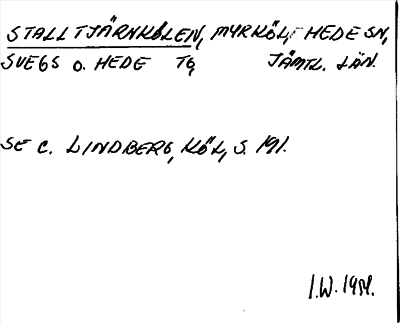 STALLTJÄRNKÖLEN, MYRKÖL, HEDE SN,
SVEGS O. HEDE TG, JÄMTL. LÄN.
SE C. LINDBERG, KÖL, S. 191.
I.W. 1954.